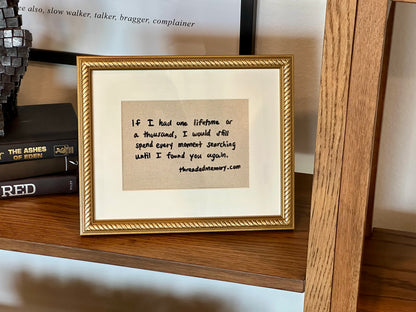 we also, slow walker, talker, bragger, complainer
If I had one lifetime or
a thousand, I would still
spend every moment searching
until I found you again.
threadedmemory.com
THE ASHES
OF EDEN
RED